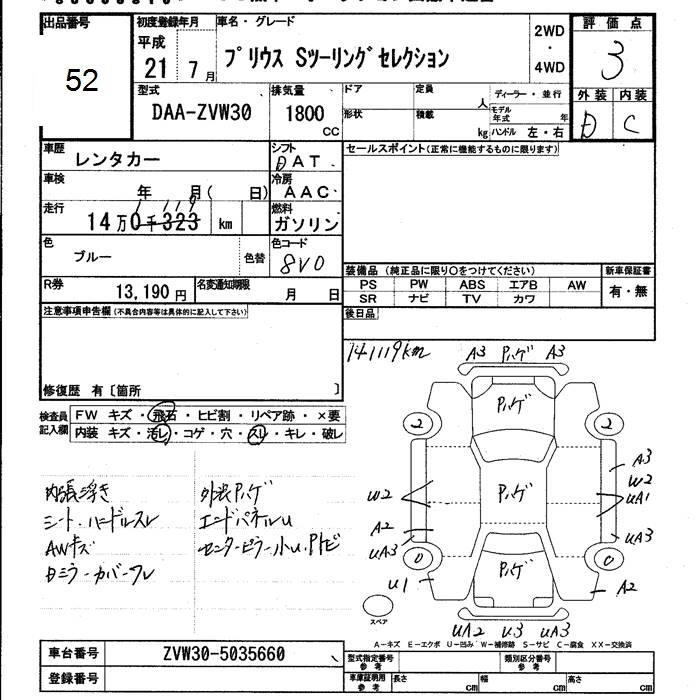 出品番号
52
初度登録年月
平成
21 7月
車名・グレード
プリウス Sツーリングセレクション
2WD
・
4WD
評価点
3
外装 内装
D C
型式
DAA-ZVW30
排気量
1800
CC
ドア
定員
人
ディーラー・並行
モデル年式 年
形状
積載
kg
ハンドル 左・右
車歴
レンタカー
シフト
DAT
セールスポイント(正常に機能するものに限ります)
車検
年 月( 日)
冷房
AAC
走行
14万0千323 km
1 119
燃料
ガソリン
色
ブルー
色替
色コード
8V0
R券
13,190円
名変通知期限
月 日
装備品(純正品に限り○をつけてください)
新車保証書
PS PW ABS エアB AW
SR ナビ TV カワ
有・無
後日品
注意事項申告欄(不具合内容等は具体的に記入して下さい)
修復歴 有〔箇所 〕
141119km
検査員
記入欄
FW キズ・飛石・ヒビ割・リペア跡・×要
内装 キズ・汚レ・コゲ・穴・スレ・キレ・破レ
内張浮き
シート・ハンドルスレ
AWキズ
Dミラーカバーワレ
外装Pハゲ
エンドパネルU
センターピラー小U、Pトビ
A3 Pハゲ A3
Pハゲ
2 2
A3
W2
UA1
Pハゲ
W2
A2
UA3
UA3
0 0
Pハゲ
U1
A2
スペア
UA2 U3 UA3
A-キズ E-エクボ U-凹み W-補修跡 S-サビ C-腐食 XX-交換済
車台番号
ZVW30-5035660
登録番号
型式指定番号
参考
類別区分番号
参考
車庫証明用
参考
長さ cm
幅 cm
高さ cm